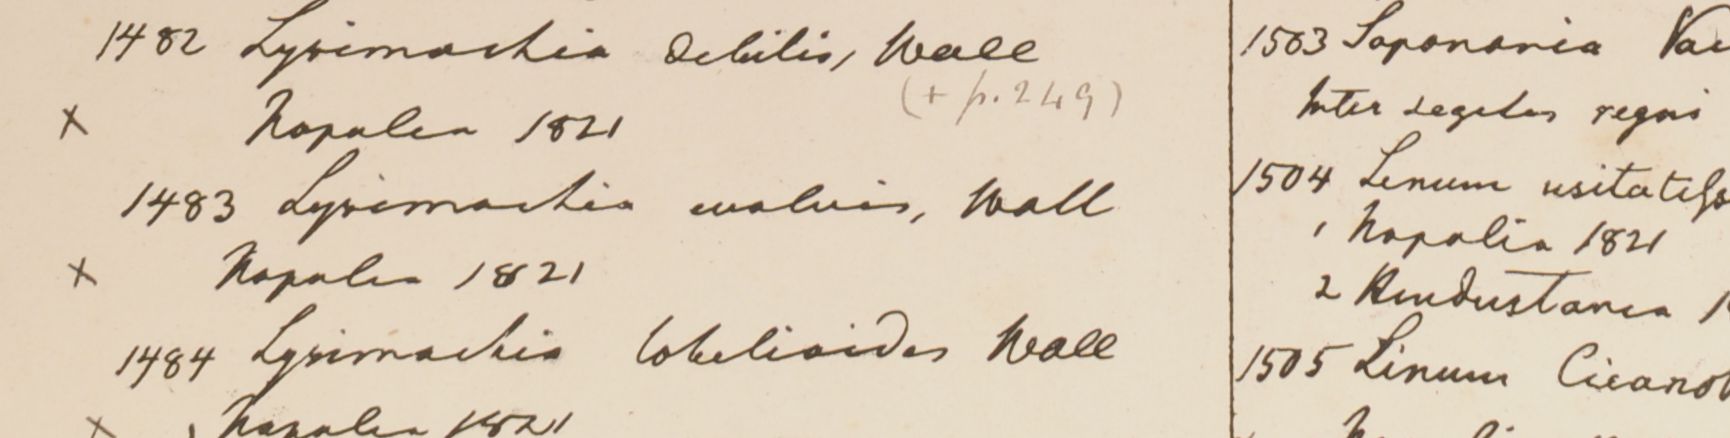 1482 Lysimachia debilis, Wall
(+ p. 249)
x Napalea 1821
1483 Lysimachia evalvis, Wall
x Napalea 1821
1484 Lysimachia lobelioides Wall
x Napalea 1821
1503 Saponaria Vac
Inter segetes regni
1504 Linum usitatiss
1 Napalia 1821
2 Hindustania 1
1505 Linum